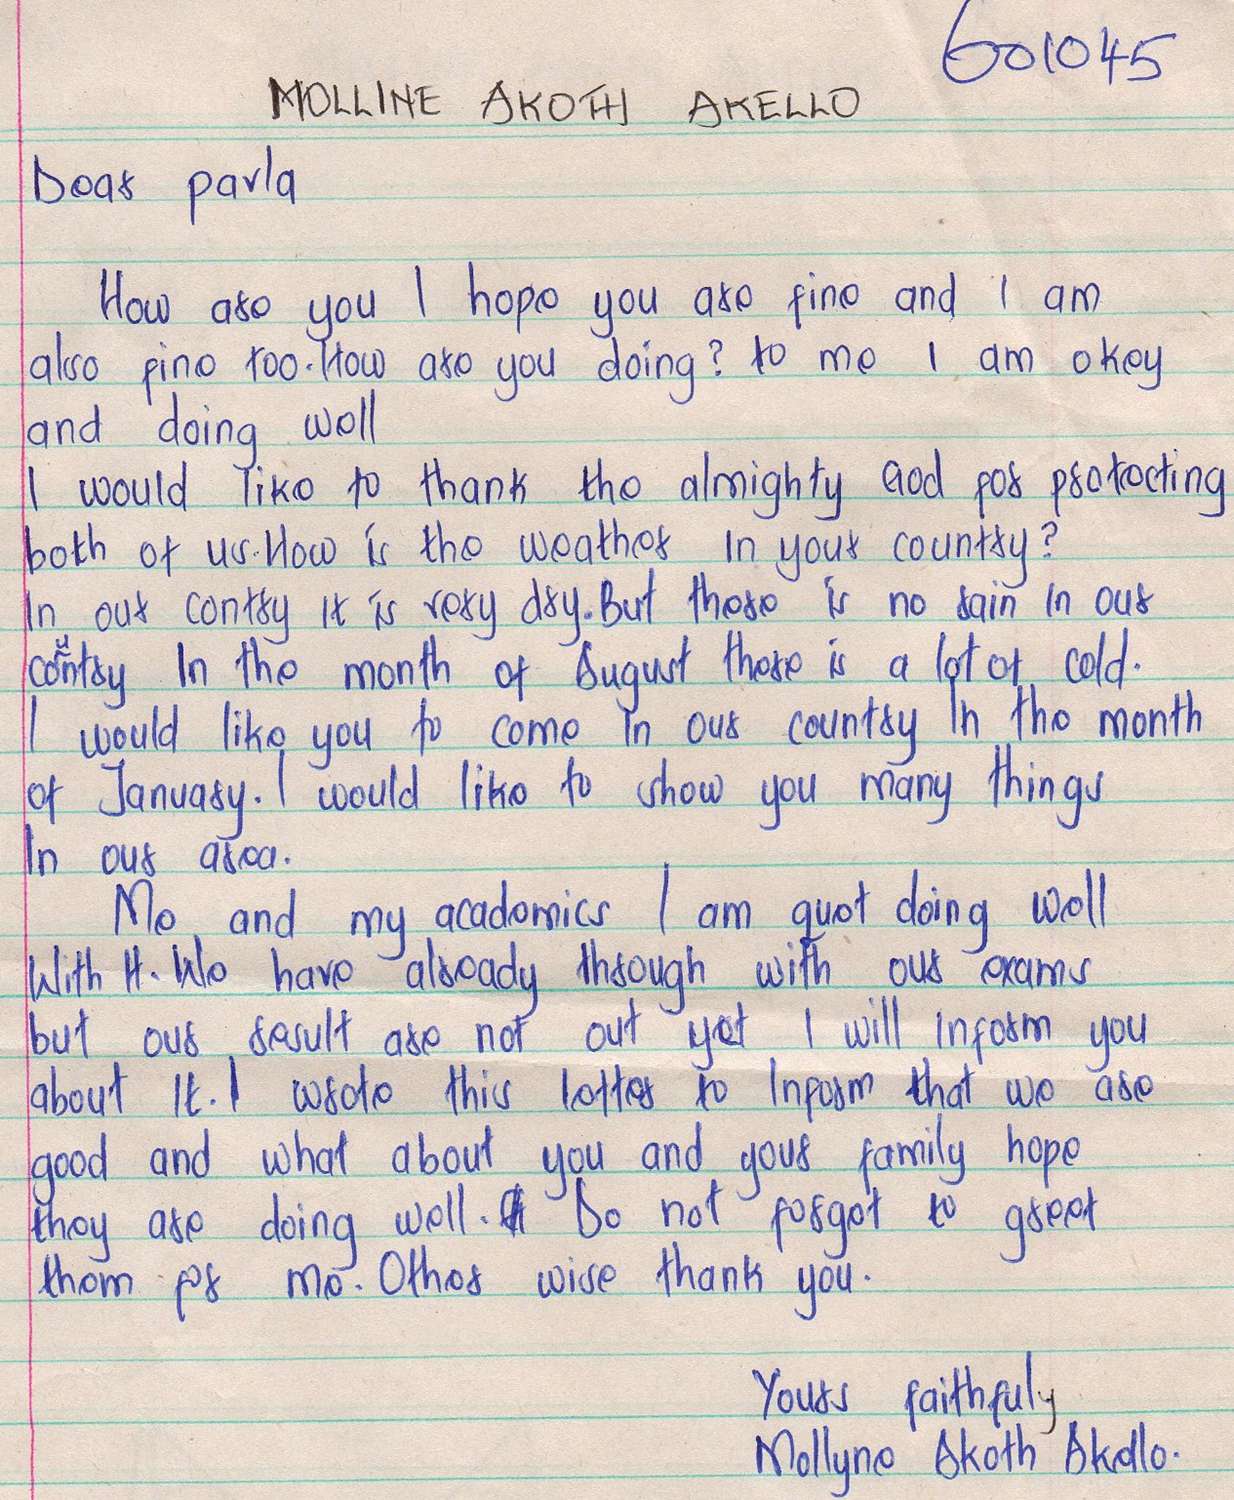 601045
MOLLINE AKOTH AKELLO
Dear parla
How are you I hope you are fine and I am
also fine too. How are you doing? to me I am okey
and doing well
I would like to thank the almighty God for protecting
both of us. How is the weather in your country?
In our contry it is very dry. But there is no rain in our
country In the month of August there is a lot of cold.
I would like you to come in our country In the month
of January. I would like to show you many things
In our area.
Me and my academics I am quet doing well
With It. We have already through with our exams
but our result are not out yet I will inform you
about It. I wrote this letter to Inform that we are
good and what about you and your family hope
they are doing well. Do not forget to greet
them for me. Other wise thank you.
Yours faithfuly
Mollyne Akoth Akello.